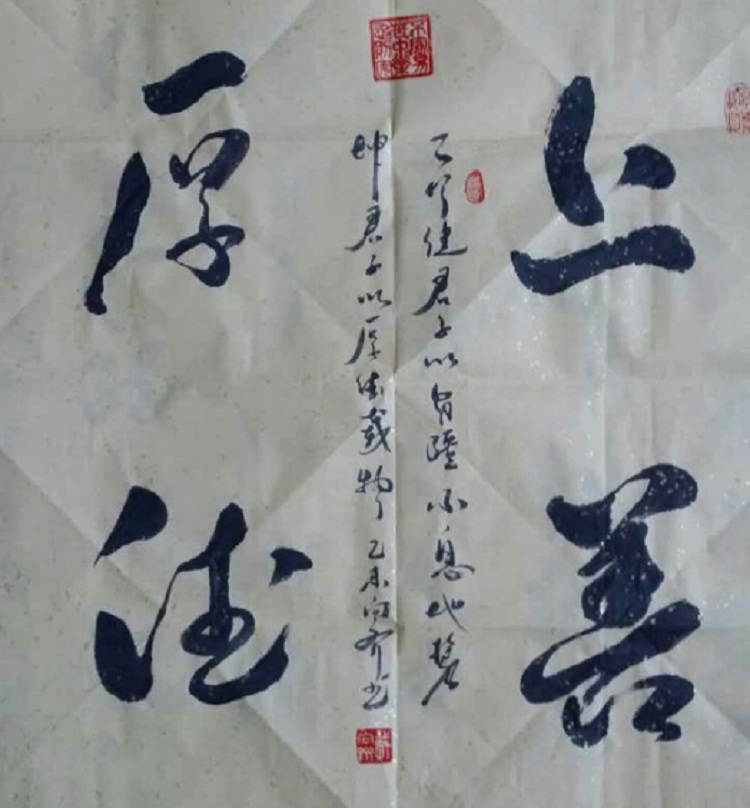 上善
天行健君子以自彊不息地勢
坤君子以厚德載物 乙未 书
厚德